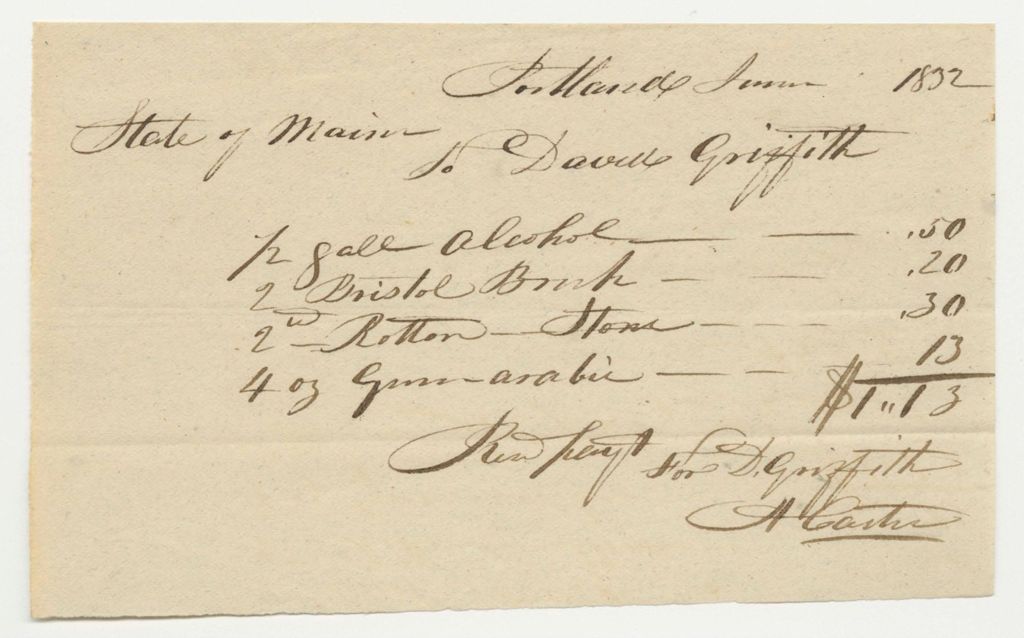 Portland June 1832
State of Maine
To David Griffith
1/2 gall Alcohol — — .50
2 Bristol Brick — — — .20
2 lb Rotton Stone — — — .30
4 oz Gum arabic — — — 13
$1.13
Recd payt For D. Griffith
A Carter